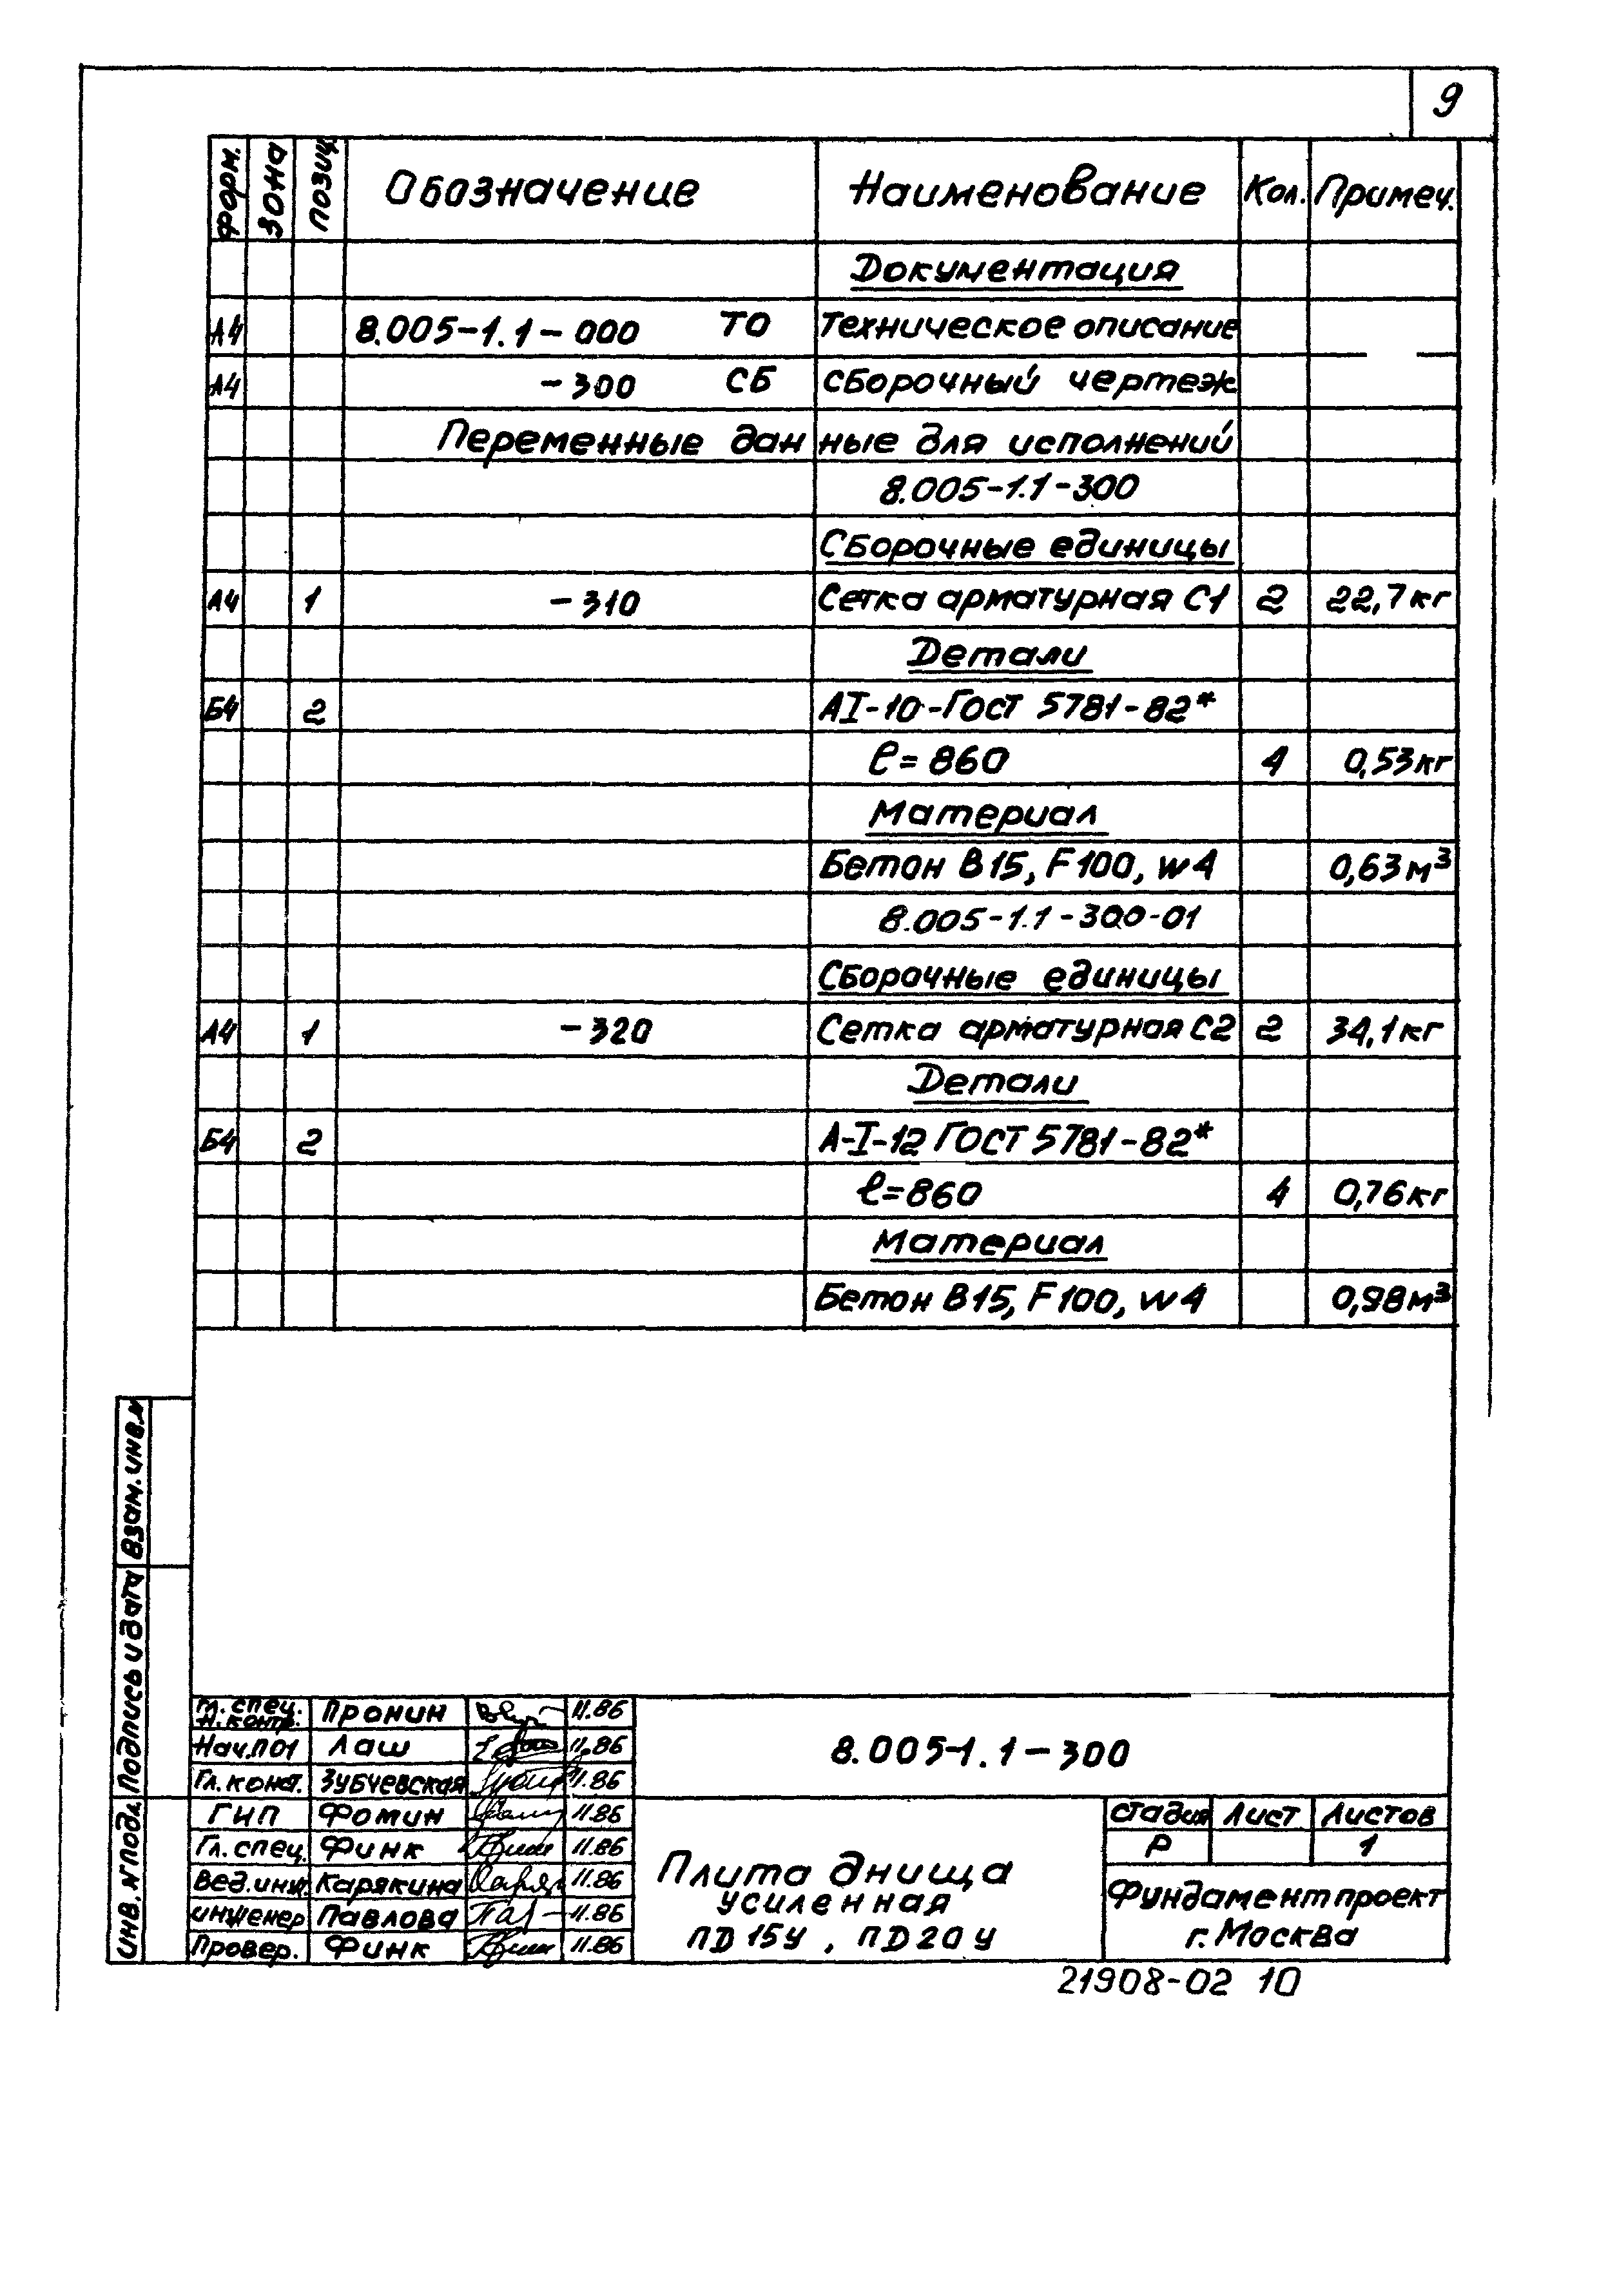 9
Форм. Зона Позиц. Обозначение Наименование Кол. Примеч.
Документация
А4 8.005-1.1-000 ТО Техническое описание
А4 -300 СБ Сборочный чертеж
Переменные данные для исполнений
8.005-1.1-300
Сборочные единицы
А4 1 -310 Сетка арматурная С1 2 22,7кг
Детали
Б4 2 АI-10-ГОСТ 5781-82*
ℓ=860 4 0,53кг
Материал
Бетон В15, F100, w4 0,63м³
8.005-1.1-300-01
Сборочные единицы
А4 1 -320 Сетка арматурная С2 2 34,1кг
Детали
Б4 2 А-I-12 ГОСТ 5781-82*
ℓ=860 4 0,76кг
Материал
Бетон В15, F100, w4 0,98м³
Взам. инв.№
Подпись и дата
Инв. №подл.
Гл. спец. Н.контр. Пронин 11.86
Нач.ПО1 Лаш 11.86
Гл. конст. Зубчевская 11.86
ГИП Фомин 11.86
Гл. спец. Финк 11.86
Вед.инж. Карякина 11.86
инженер Павлова 11.86
Провер. Финк 11.86
8.005-1.1-300
Плита днища
усиленная
ПД15У, ПД20У
Стадия Лист Листов
Р 1
Фундаментпроект
г. Москва
21908-02 10